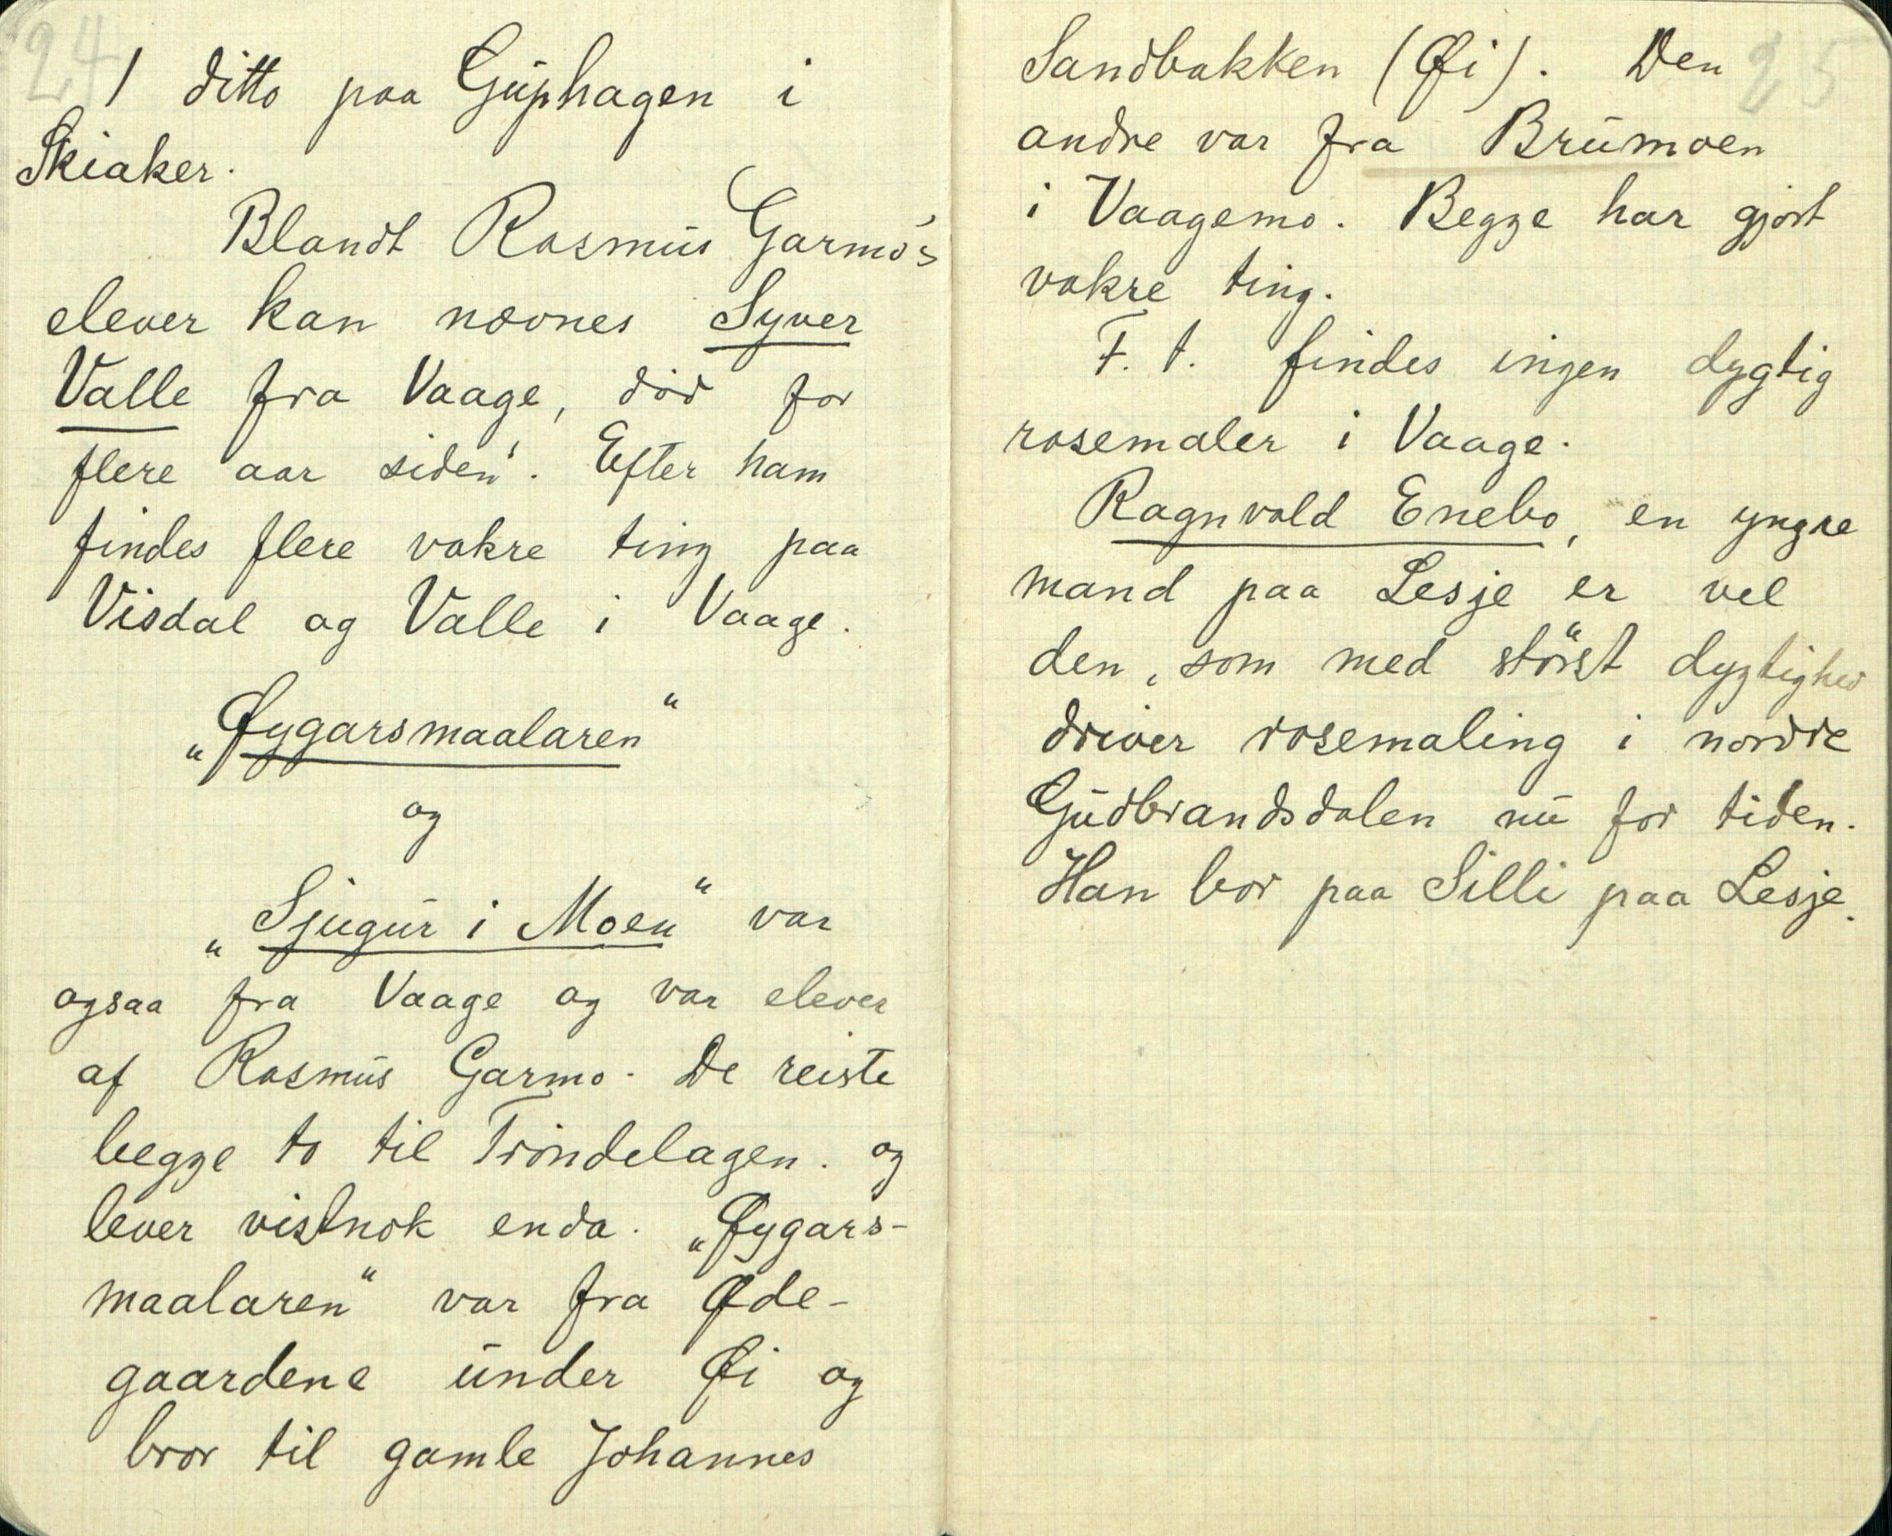 24
1 ditto paa Guphagen i
Skiaker.
Blandt Rasmus Garmo's
elever kan nævnes Syver
Valle fra Vaage, død for
flere aar siden. Efter ham
findes flere vakre ting paa
Visdal og Valle i Vaage.
„Øygarsmaalaren“
og
„Sjugur i Moen“ var
ogsaa fra Vaage og var elever
af Rasmus Garmo. De reiste
begge to til Trøndelagen. og
lever vistnok enda. „Øygars-
maalaren“ var fra Øde-
gaardene under Øi og
bror til gamle Johannes
25
Sandbakken (Øi). Den
andre var fra Brumoen
i Vaagemo. Begge har gjort
vakre ting.
F. t. findes ingen dygtig
rosemaler i Vaage.
Ragnvald Enebo, en yngre
mand paa Lesje er vel
den, som med størst dygtighed
driver rosemaling i nordre
Gudbrandsdalen nu for tiden.
Han bor paa Silli paa Lesje.